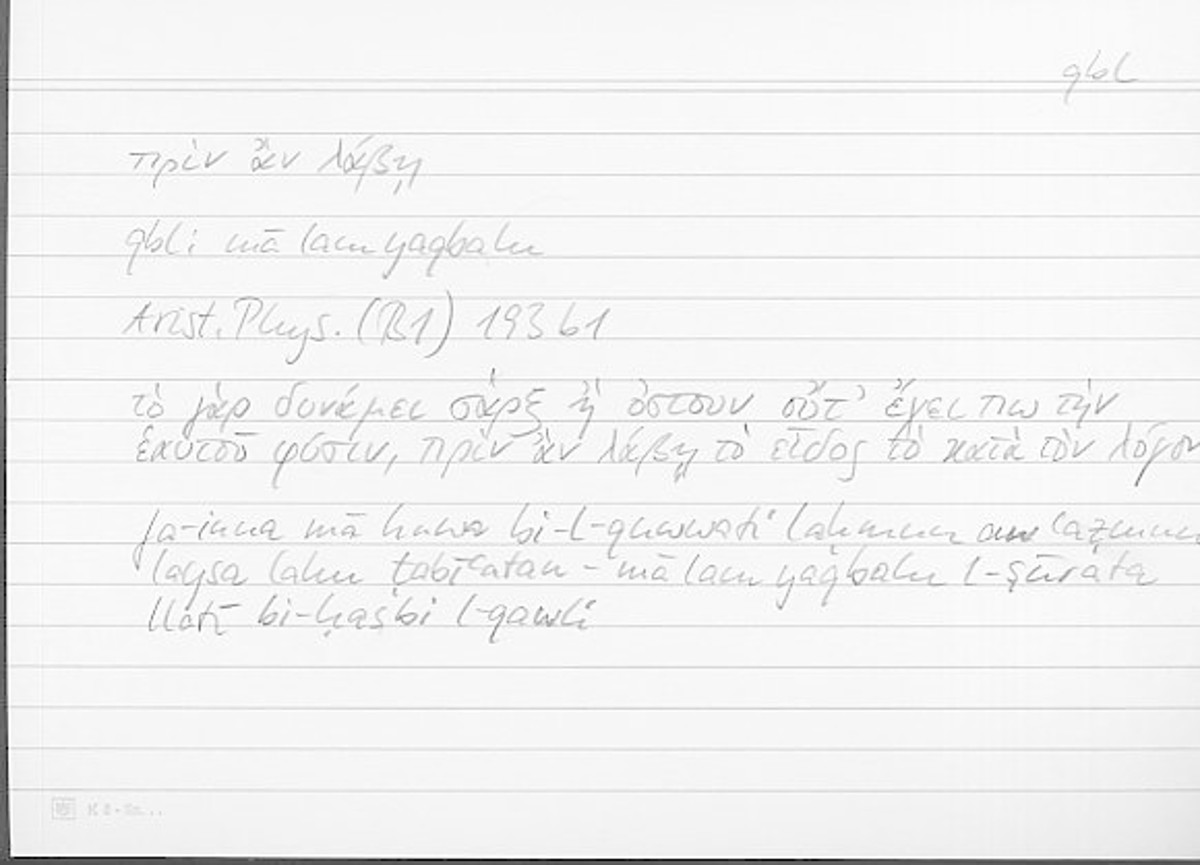 qbl
πρὶν ἂν λάβῃ
qbli mā lam yaqbalu
Arist. Phys. (B1) 193 b1
τὸ γὰρ δυνάμει σάρξ ἢ ὀστοῦν οὔτ' ἔχει πω τὴν
ἑαυτοῦ φύσιν, πρὶν ἂν λάβῃ τὸ εἶδος τὸ κατὰ τὸν λόγον
fa-inna mā huwa bi-l-quwwati laḥmun aw ʿaẓmun
laysa lahu ṭabīʿatan - mā lam yaqbalu l-ṣūrata
llatī bi-ḥasbi l-qawli